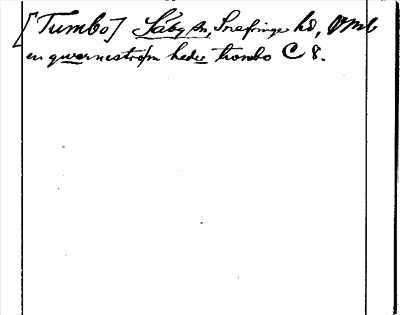 [Tumbo] Säby sn, Snefringe hd, Vml
en qwernestrøm heder trombo C 8.